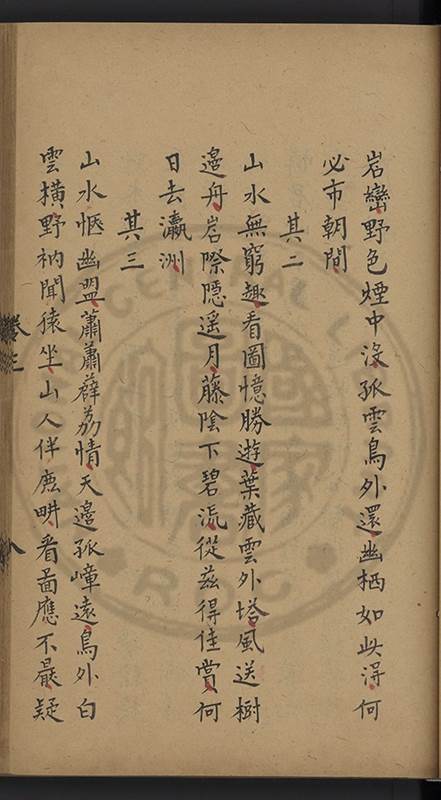 岩巒野色煙中沒孤雲鳥外還幽栖如此得何
必市朝間
其二
山水無窮趣看圖憶勝遊葉藏雲外塔風送樹
邊舟岩際隱遥月藤陰下碧流從茲得佳賞何
日去瀛洲
其三
山水愜幽盟蕭蕭薜荔情天邊孤嶂遠鳥外白
雲橫野衲聞猿坐山人伴鹿畊看圖應不最疑
卷三
八
NATIONAL CENTRAL LIBRARY
R.O.C.